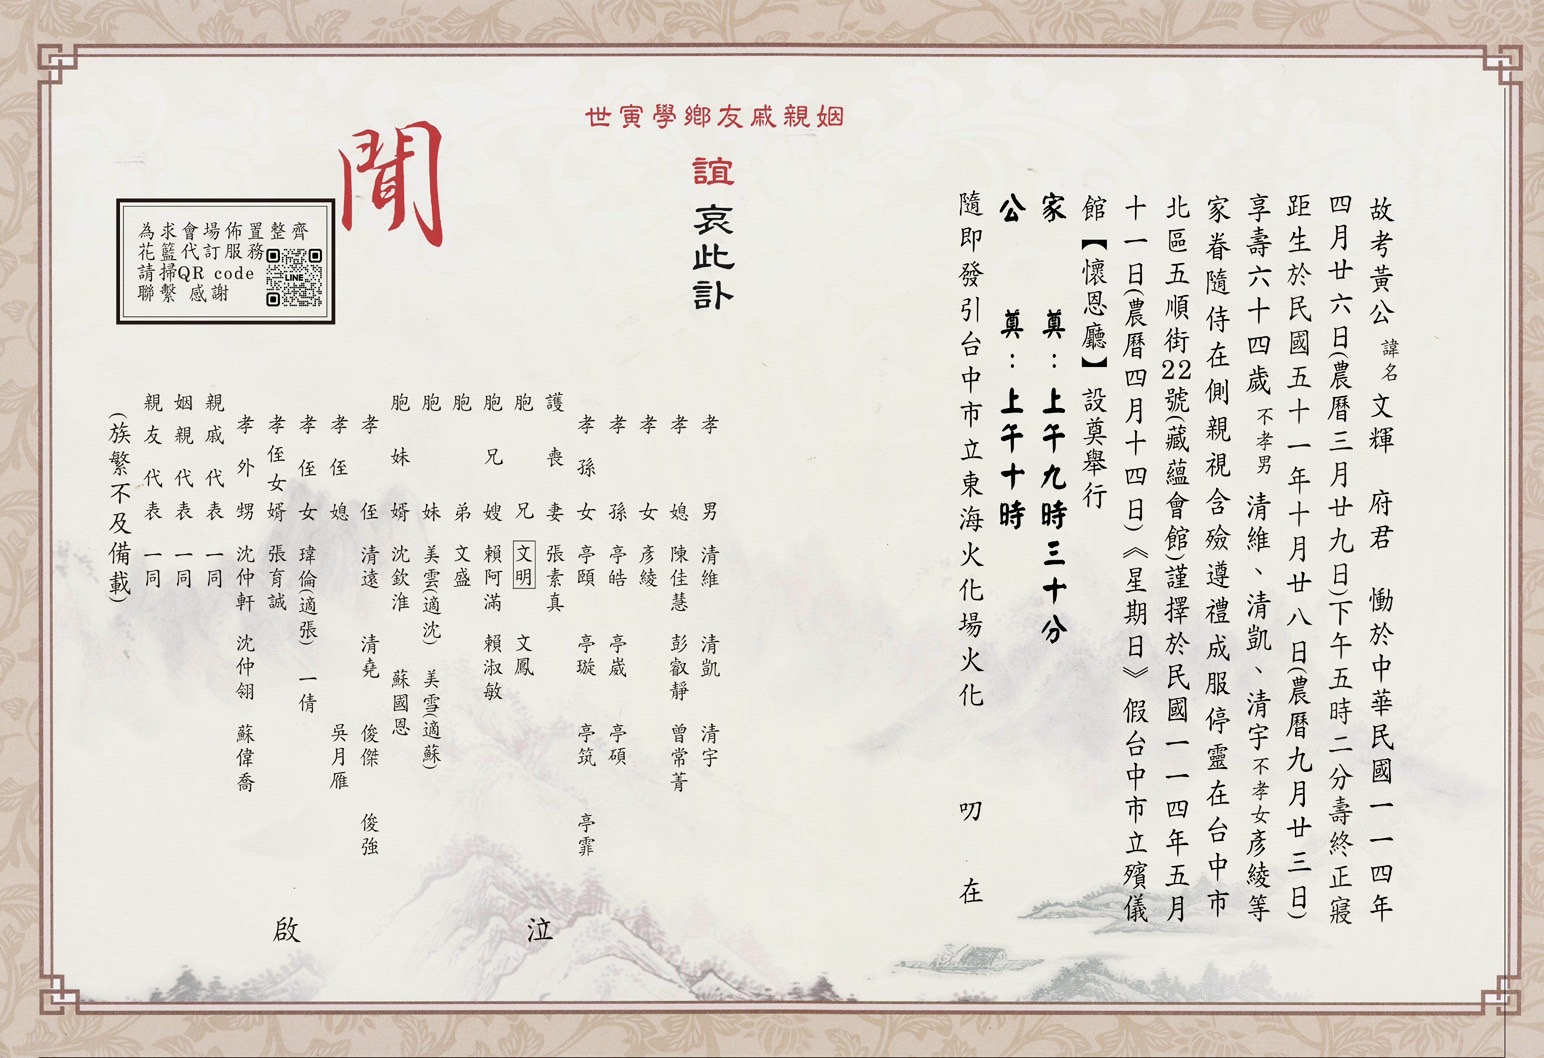 故考黃公 諱名 文輝 府君 慟於中華民國一一四年
四月廿六日(農曆三月廿九日)下午五時二分壽終正寢
距生於民國五十一年十月廿八日(農曆九月廿三日)
享壽六十四歲 不孝男 清維、清凱、清宇 不孝女 彥綾等
家眷隨侍在側親視含殮遵禮成服停靈在台中市
北區五順街22號(藏蘊會館)謹擇於民國一一四年五月
十一日(農曆四月十四日)《星期日》假台中市立殯儀
館【懷恩廳】設奠舉行
家 奠:上午九時三十分
公 奠:上午十時
隨即發引台中市立東海火化場火化 叨 在
姻親戚友鄉學寅世
誼 哀此訃
聞
孝男 清維 清凱 清宇
孝媳 陳佳慧 彭叡靜 曾常菁
孝女 彥綾
孝孫 亭皓 亭崴 亭碩
孝孫女 亭頤 亭璇 亭筑 亭霏
護喪妻 張素真
胞兄 文明 文鳳
胞兄嫂 賴阿滿 賴淑敏
胞弟 文盛
胞妹 美雲(適沈) 美雪(適蘇)
胞妹婿 沈欽淮 蘇國恩
孝侄 清遠 清堯 俊傑 俊強
孝侄媳 吳月雁
孝侄女 瑋倫(適張) 一倩
孝侄女婿 張育誠
孝外甥 沈仲軒 沈仲翎 蘇偉喬
親戚代表一同
姻親代表一同
親友代表一同
(族繁不及備載)
泣
啟
為求會場佈置整齊
花籃代訂服務
請掃QR code
聯繫 感謝
LINE